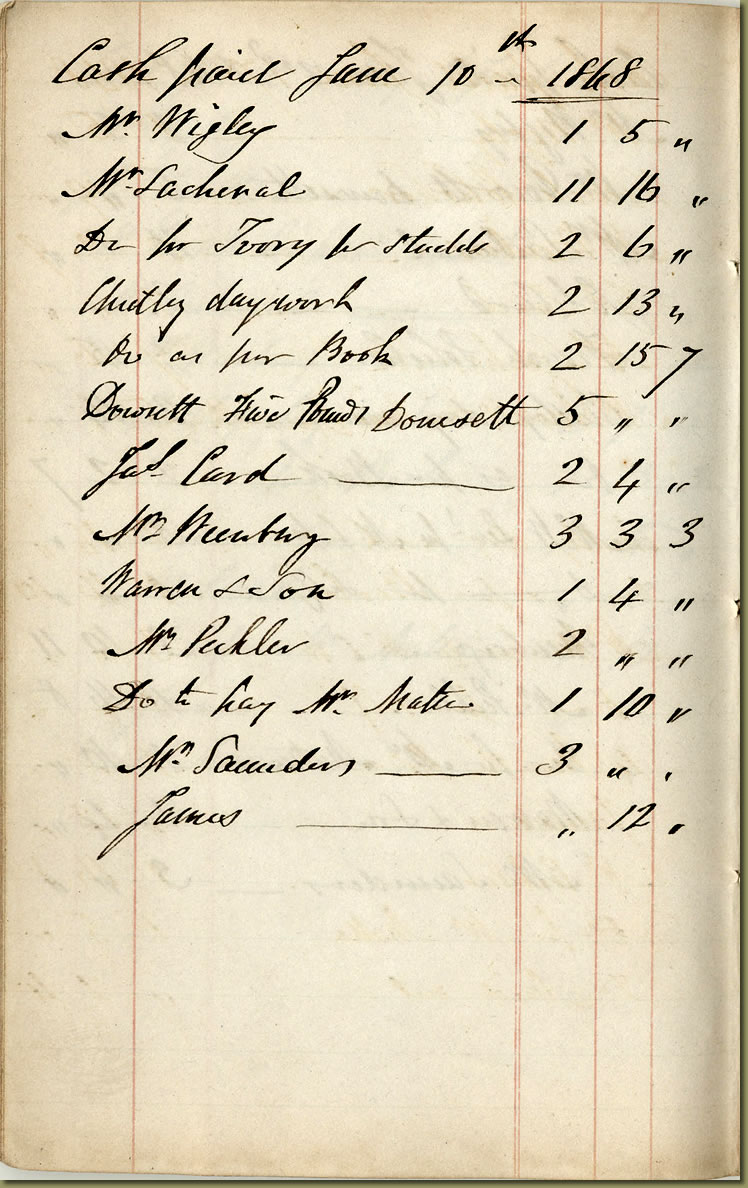 Cash paid Jany 10th 1868
Mr Wigley 1 5 "
Mr Lachenal 11 16 "
Do for Ivory for studds 2 6 "
Chutley daywork 2 13 "
Do as per Book 2 15 7
Dowsett Five Pounds Dowsett 5 " "
Jas Card 2 4 "
Mrs 3 3 3
Warren & Son 1 4 "
Mr 2 " "
Do to pay Mr 1 10 "
Mrs Saunders 3 " "
James " 12 "